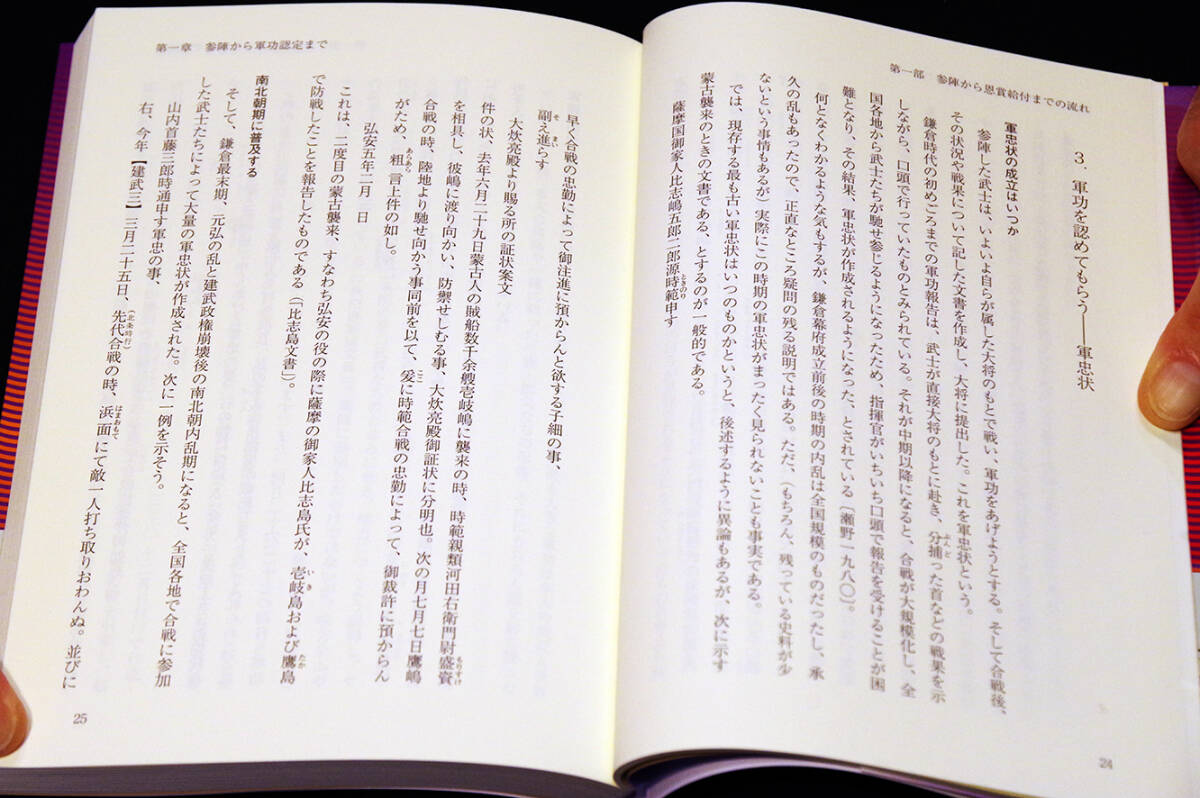 第一部　参陣から恩賞給付までの流れ
3　軍功を認めてもらう――軍忠状
軍忠状の成立はいつか
参陣した武士は、いよいよ自らが属した大将のもとで戦い、軍功をあげようとする。そして合戦後、
その状況や戦果について記した文書を作成し、大将に提出した。これを軍忠状という。
鎌倉時代の初めごろまでの軍功報告は、武士が直接大将のもとに赴き、分捕った首などの戦果を示
ぶんど
しながら、口頭で行っていたものとみられている。それが中期以降になると、合戦が大規模化し、全
国各地から武士たちが馳せ参じるようになったため、指揮官がいちいち口頭で報告を受けることが困
難となり、その結果、軍忠状が作成されるようになった、とされている〔瀬野一九八〇〕。
何となくわかるような気もするが、鎌倉幕府成立前後の時期の内乱は全国規模のものだったし、承
久の乱もあったので、正直なところ疑問の残る説明ではある。ただ、（もちろん、残っている史料が少
ないという事情もあるが）実際にこの時期の軍忠状がまったく見られないことも事実である。
では、現存する最も古い軍忠状はいつのものかというと、後述するように異論もあるが、次に示す
蒙古襲来のときの文書である、とするのが一般的である。
薩摩国御家人比志嶋五郎二郎源時範申す
ときのり
24
第一章　参陣から軍功認定まで
早く合戦の忠勤によって御注進に預からんと欲する子細の事、
副え進らす
そ　まい
大炊亮殿より賜る所の証状案文
件の状、去年六月二十九日蒙古人の賊船数千余艘壱岐嶋に襲来の時、時範親類河田右衛門尉盛資
もりすけ
を相具し、彼嶋に渡り向かい、防禦せしむる事、大炊亮殿御証状に分明也。次の月七月七日鷹嶋
合戦の時、陸地より馳せ向かう事同前を以て、爰に時範合戦の忠勤によって、御裁許に預からん
ここ
がため、粗言上件の如し。
あらあら
弘安五年二月　日
これは、二度目の蒙古襲来、すなわち弘安の役の際に薩摩の御家人比志島氏が、壱岐島および鷹島
いき　たか
で防戦したことを報告したものである（「比志島文書」）。
南北朝期に普及する
そして、鎌倉最末期、元弘の乱と建武政権崩壊後の南北朝内乱期になると、全国各地で合戦に参加
した武士たちによって大量の軍忠状が作成された。次に一例を示そう。
山内首藤三郎時通申す軍忠の事、
右、今年【建武三】三月二十五日、先代合戦の時、浜面にて敵一人打ち取りおわんぬ。並びに
（北条時行）　はまおもて
25